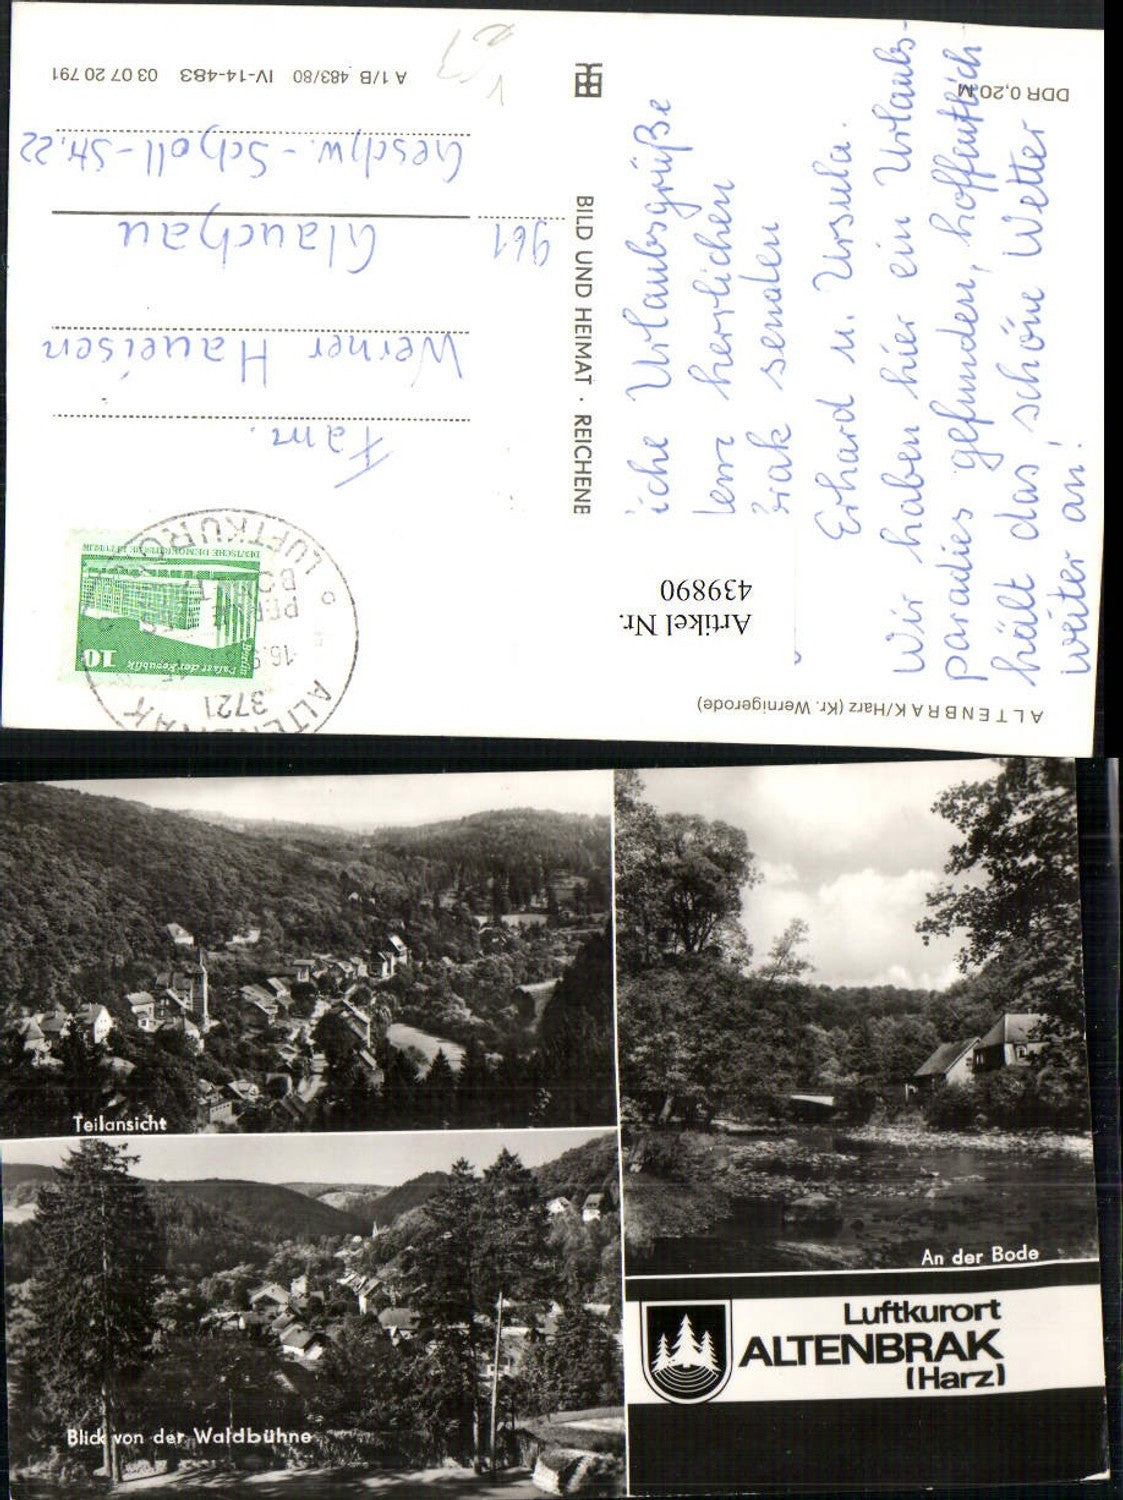 ALTENBRAK/Harz (Kr. Wernigerode)
DDR 0,20 M
Artikel Nr.
439890
iche Urlaubsgrüße
herrlichen
brak senden
Erhard u. Ursula.
Wir haben hier ein Urlaubs-
paradies gefunden, hoffentlich
hält das schöne Wetter
weiter an!
BILD UND HEIMAT · REICHENB
ALTENBRAK
3721
LUFTKURORT
PERLE
BODETALES
Berlin
Palast der Republik
10
DEUTSCHE DEMOKRATISCHE REPUBLIK
Fam.
Werner Haueisen
961 Glauchau
Geschw.-Scholl-Str. 22
A 1/B 483/80 IV-14-483 03 07 20 791
Teilansicht
An der Bode
Blick von der Waldbühne
Luftkurort
ALTENBRAK
(Harz)